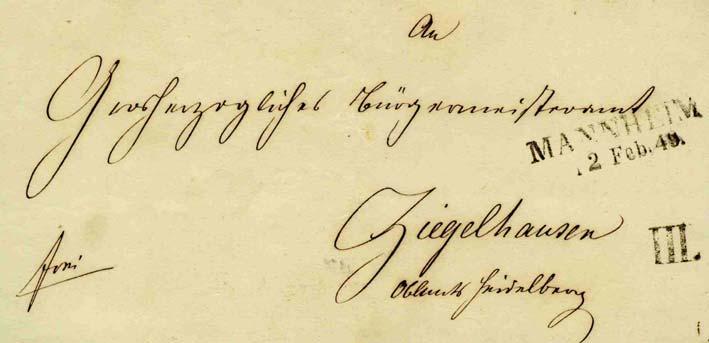 An
Grosherzogliches Bürgermeisteramt
MANNHEIM
2 Feb. 48.
Ziegelhausen
III.
frei
Oblamts Heidelberg